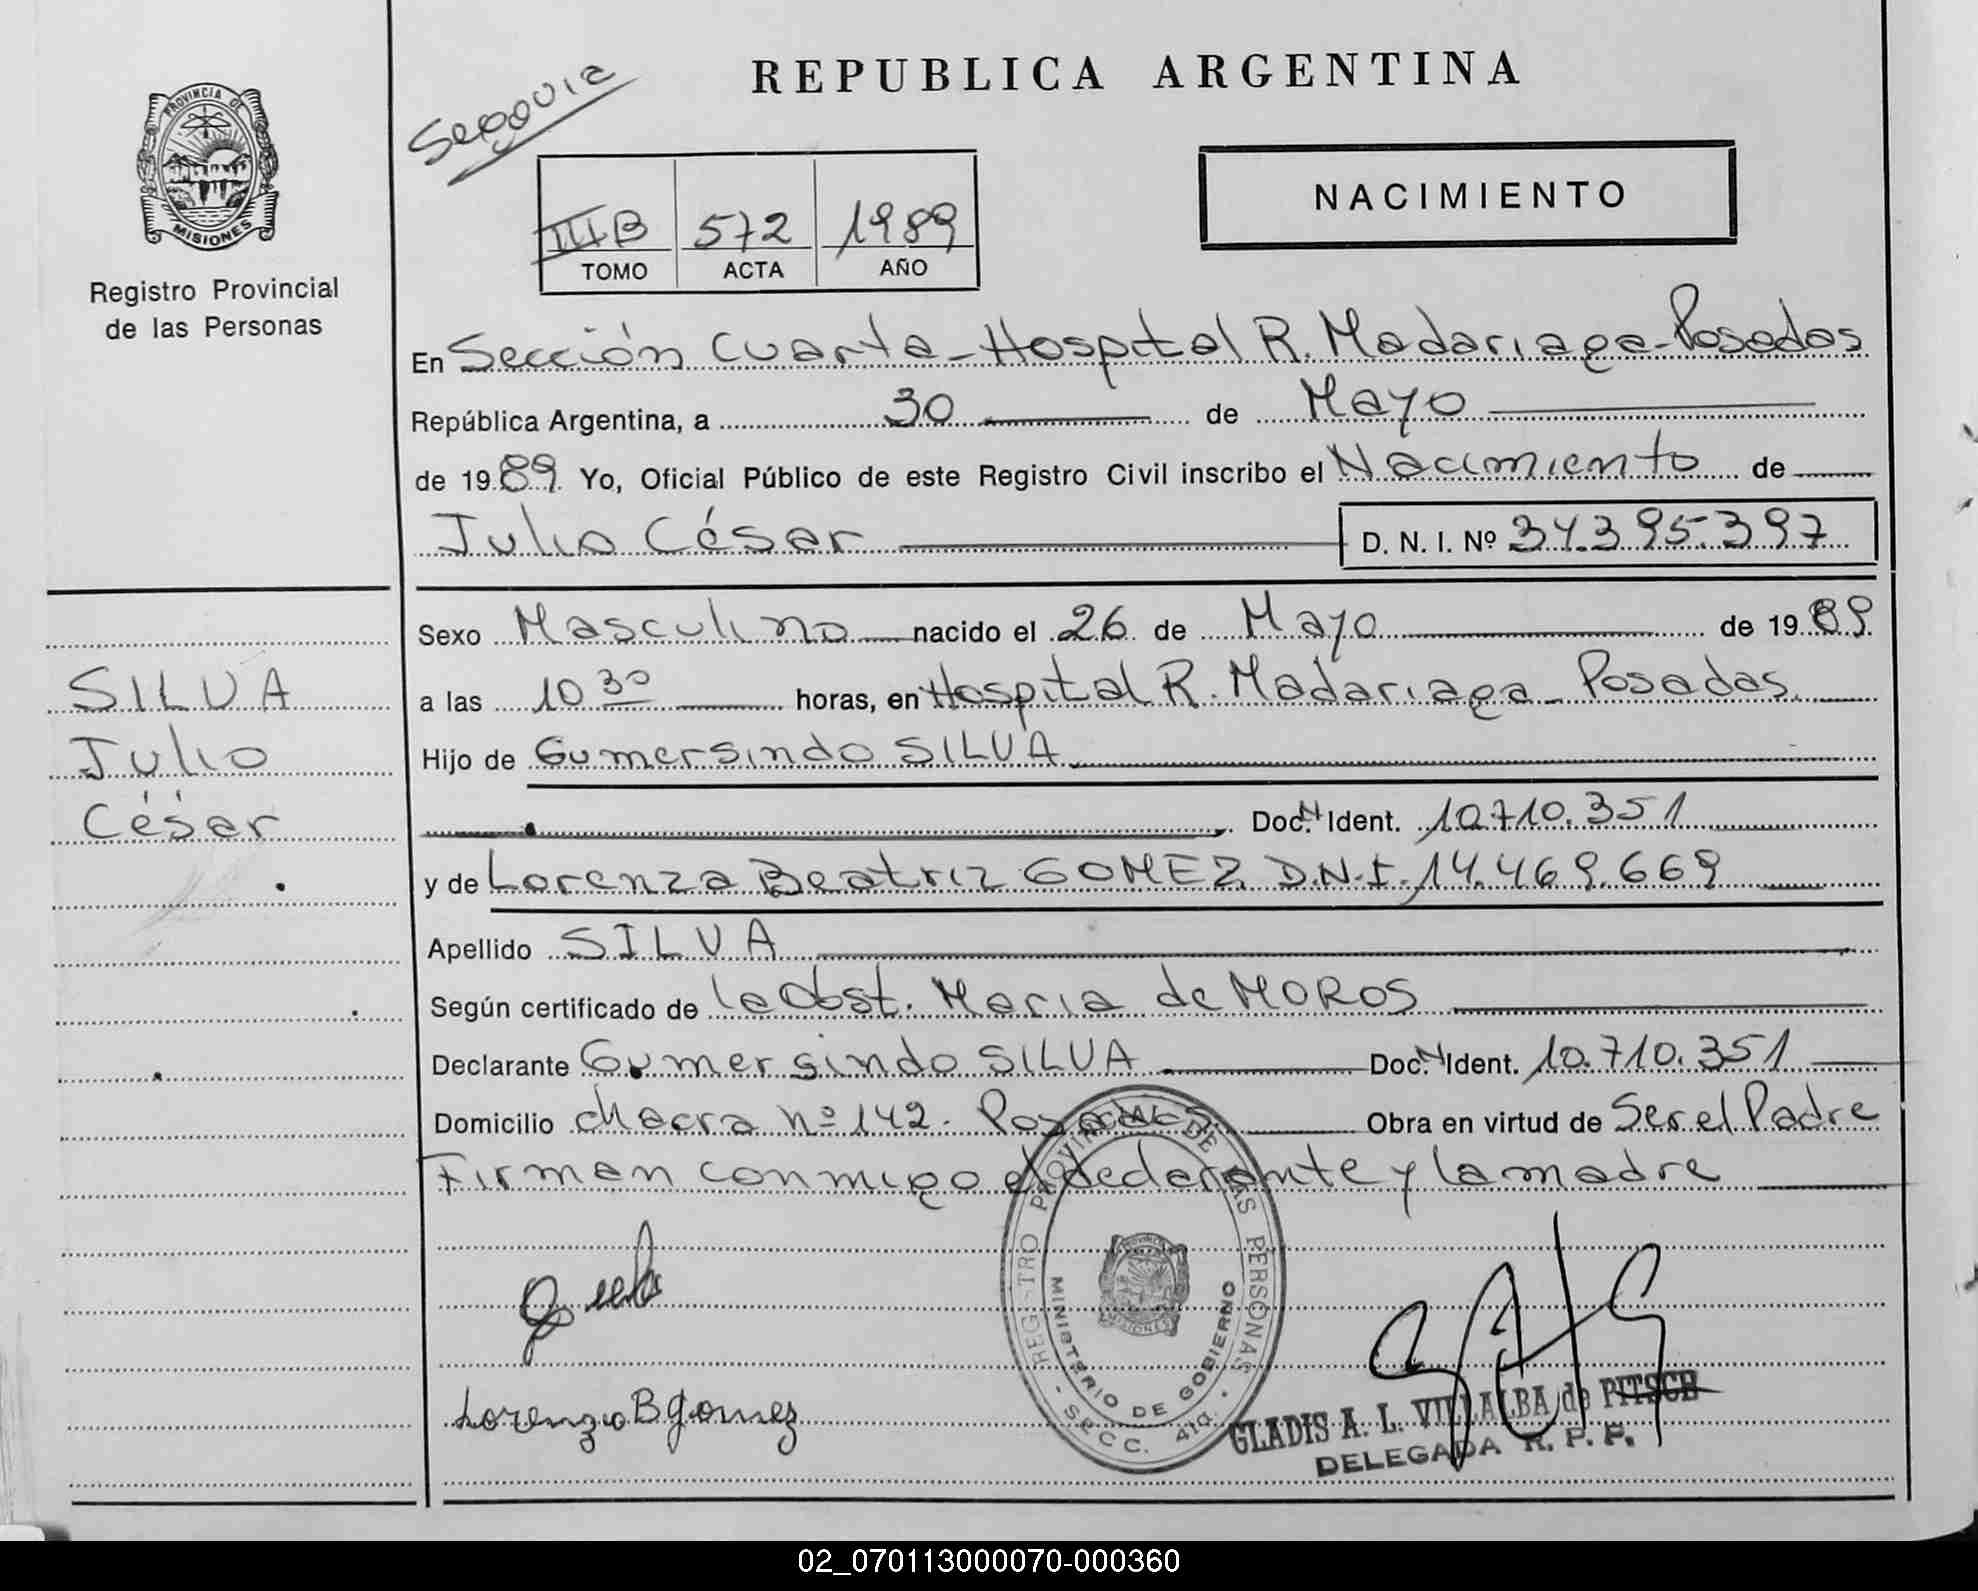 REPUBLICA ARGENTINA
Segovia
PROVINCIA DE
MISIONES
Registro Provincial
de las Personas
III B 572 1989
TOMO ACTA AÑO
NACIMIENTO
En Sección Cuarta - Hospital R. Madariaga - Posadas
República Argentina, a 30 de Mayo
de 1989. Yo, Oficial Público de este Registro Civil inscribo el Nacimiento de
Julio César D. N. I. Nº 34.395.397
Sexo Masculino nacido el 26 de Mayo de 1989
a las 10 30 horas, en Hospital R. Madariaga - Posadas.
Hijo de Gumersindo SILVA
Doc. N Ident. 10.710.351
y de Lorenza Beatriz GOMEZ D.N.I. 14.469.669
Apellido SILVA
Según certificado de la Obst. Maria de MOROS
Declarante Gumersindo SILVA Doc. N Ident. 10.710.351
Domicilio chacra nº 142. Posadas Obra en virtud de Ser el Padre
Firman conmigo el declarante y la madre
SILVA
Julio
César
REGISTRO PROVINCIAL DE LAS PERSONAS
MINISTERIO DE GOBIERNO
- SECC. 4ta. -
MISIONES
Lorenza B Gomez
GLADIS A. L. VILLALBA de PITSCH
DELEGADA R. P. P.
02_070113000070-000360